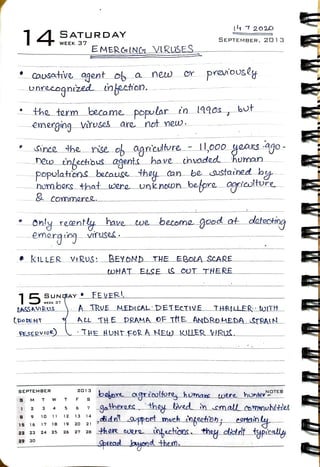 14 7 2020
14 SATURDAY
WEEK 37
SEPTEMBER, 2013
EMERGING VIRUSES
• causative agent of a new or previously
unrecognized infection.
• the term became popular in 1990s, but
emerging viruses are not new.
• since the rise of agriculture - 11,000 years ago -
new infectious agents have invaded human
populations because they can be sustained by
numbers that were unknown before agriculture
& commerce.
• only recently have we become good at detecting
emerging viruses.
• KILLER VIRUS: BEYOND THE EBOLA SCARE
WHAT ELSE IS OUT THERE
15 SUNDAY • FEVER!
WEEK 37
LASSAVIRUS
(RODENT
RESERVIOR)
A TRUE MEDICAL DETECTIVE THRILLER WITH
ALL THE DRAMA OF THE ANDROMEDA STRAIN
- THE HUNT FOR A NEW KILLER VIRUS.
SEPTEMBER 2013
S M T W T F S
1 2 3 4 5 6 7
8 9 10 11 12 13 14
15 16 17 18 19 20 21
22 23 24 25 26 27 28
29 30
NOTES
before agriculture, humans were hunter-
gatherers. they lived in small communities
didn't support much infection; certainly
there were infections. they didn't typically
spread beyond them.